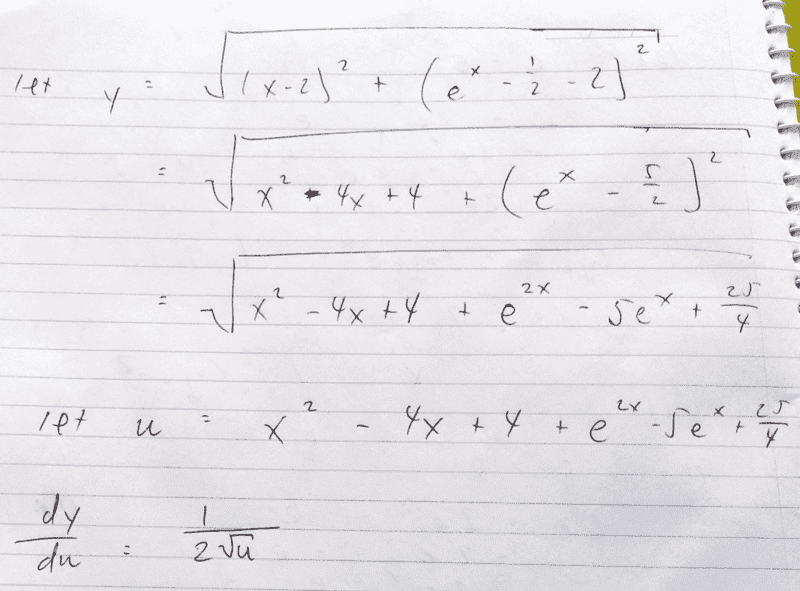 let y = √((x-2)² + (e^x - 1/2 - 2)²)
= √(x² - 4x + 4 + (e^x - 5/2)²)
= √(x² - 4x + 4 + e^(2x) - 5e^x + 25/4)
let u = x² - 4x + 4 + e^(2x) - 5e^x + 25/4
dy/du = 1/(2√u)